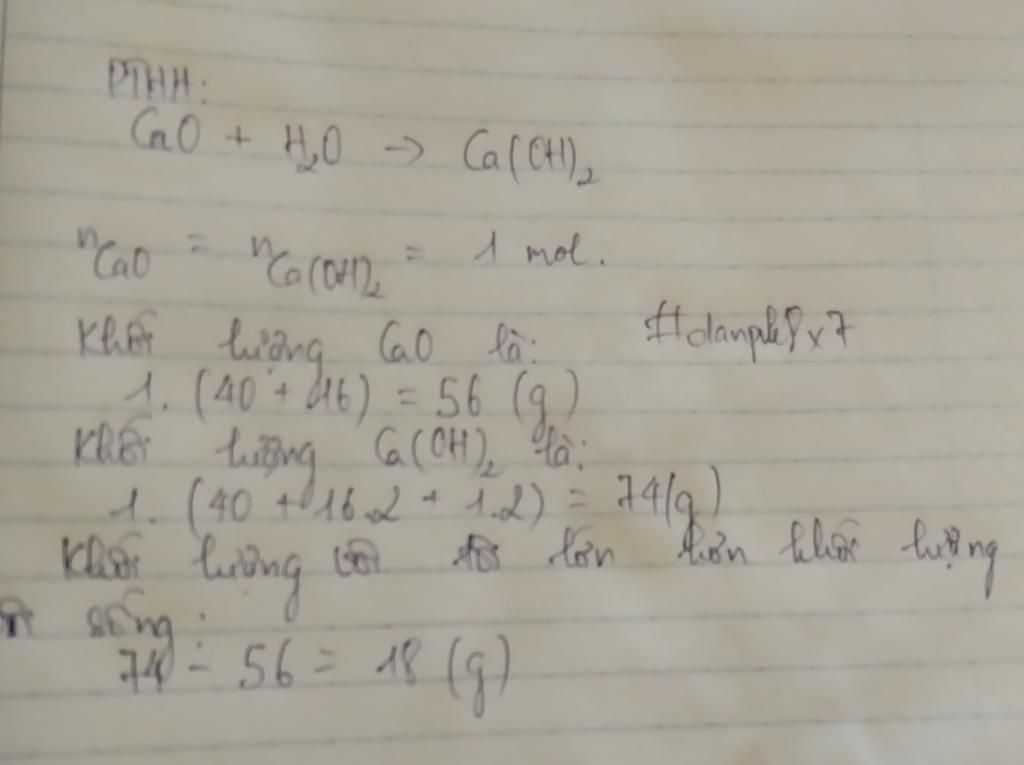 PTHH:
CaO + H₂O → Ca(OH)₂
nCaO = nCa(OH)₂ = 1 mol.
Khối lượng CaO là:
1. (40 + 16) = 56 (g)
Khối lượng Ca(OH)₂ là:
1. (40 + 16.2 + 1.2) = 74(g)
Khối lượng vôi tôi lớn hơn khối lượng
sống:
74 - 56 = 18 (g)